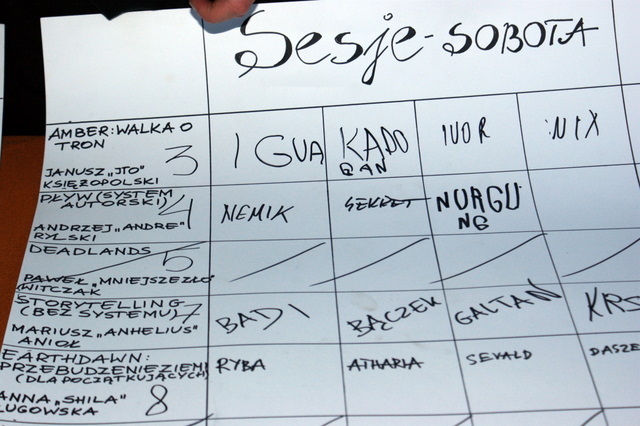 Sesje - SOBOTA
AMBER: WALKA O
TRON
JANUSZ „JTO"
KSIĘŻOPOLSKI
3
IGUA
KADO
GAN
IVOR
NIX
PŁYW (SYSTEM
AUTORSKI)
ANDRZEJ „ANDRE"
RYLSKI
4
NEMIK
SEKRET
NURGU
NG
DEADLANDS
PAWEŁ „MNIEJSZEZŁO
WITCZAK
5
STORYTELLING
(BEZ SYSTEMU)
MARIUSZ „ANHELIUS"
ANIOŁ
7
BADI
BĄCZEK
GALTAN
KRS
EARTHDAWN:
PRZEBUDZENIE ZIEMI
(DLA POCZĄTKUJĄCYCH)
ANNA „SHILA"
ŁUGOWSKA
8
RYBA
ATHARIA
SEVALD
DASZE